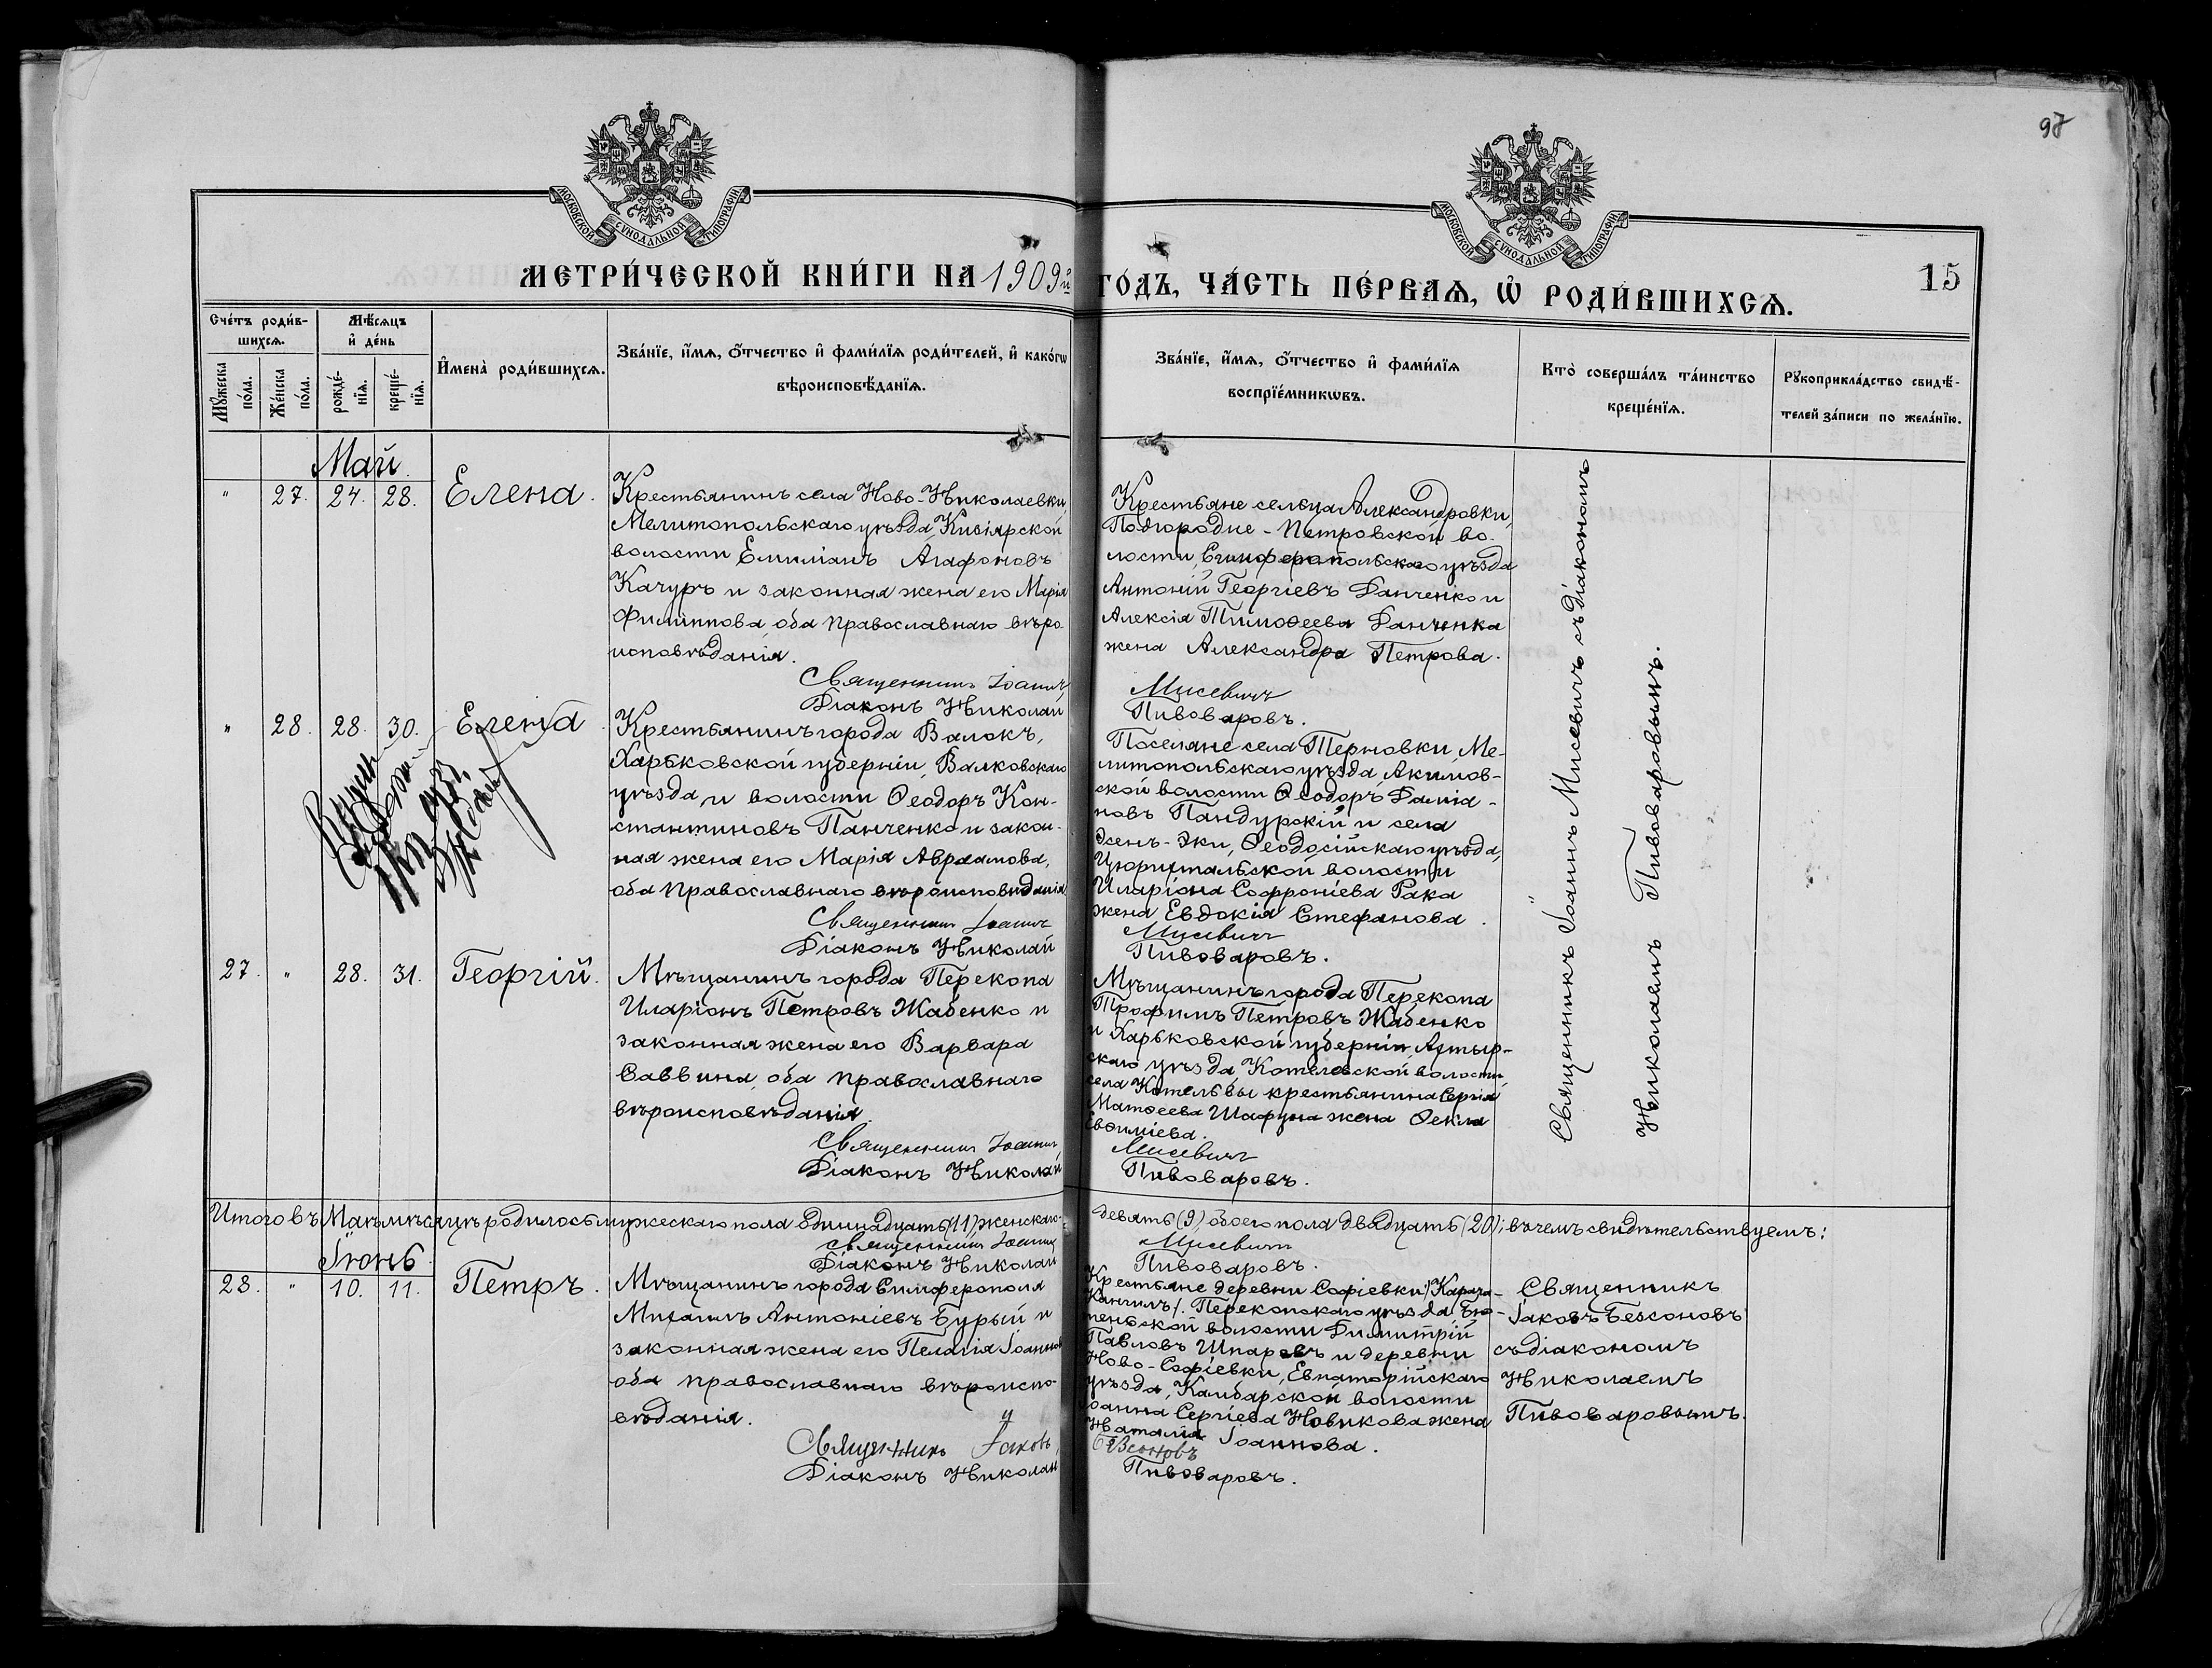 97
МОСКОВСКОЙ СѴНОДАЛЬНОЙ ТИПОГРАФІИ
МОСКОВСКОЙ СѴНОДАЛЬНОЙ ТИПОГРАФІИ
МЕТРИ́ЧЕСКОЙ КНИ́ГИ НА 1909й ГО́ДЪ, ЧА́СТЬ ПЕ́РВАѦ, Ѽ РОДИ́ВШИХСѦ.
15
Сче́тъ роди́в-
шихсѧ.
Мѣ́сѧцъ
и҆ де́нь
Мꙋ́жеска
по́ла.
Же́нска
по́ла.
рожде́-
нїѧ.
креще́-
нїѧ.
И҆мена̀ роди́вшихсѧ.
Зва́нїе, и҆́мѧ, ѻ҆́тчество и҆ фами́лїѧ роди́телей, и҆ како́гѡ
вѣроисповѣ́данїѧ.
Зва́нїе, и҆́мѧ, ѻ҆́тчество и҆ фами́лїѧ
воспрїе́мникѡвъ.
Кто̀ соверша́лъ та́инство
креще́нїѧ.
Рꙋкоприкла́дство свидѣ́-
телей за́писи по жела́нїю.
Май.
" 27. 24. 28. Елена.
Крестьянинъ села Ново-Николаевки,
Мелитопольскаго уѣзда, Кизіярской
волости Емиліанъ Агафоновъ
Качуръ и законная жена его Марія
Филиппова, оба православнаго вѣро-
исповѣданія.
Священникъ Іоаннъ
Діаконъ Николай
Крестьяне сельца Александровки,
Подгородне-Петровской во-
лости, Симферопольскаго уѣзда
Антоній Георгіевъ Данченко и
Алексія Тимоѳеева Данченка
жена Александра Петрова.
Мисевичъ
Пивоваровъ.
Священникъ Іоаннъ Мисевичъ съ діакономъ
Николаемъ Пивоваровымъ.
" 28. 28. 30. Елена.
Крестьянинъ города Валокъ,
Харьковской губерніи, Валковскаго
уѣзда, и волости Ѳеодоръ Кон-
стантиновъ Панченко и закон-
ная жена его Марія Авраамова,
оба православнаго вѣроисповѣданія
Священникъ Іоаннъ
Діаконъ Николай
Поселяне села Терновки, Ме-
литопольскаго уѣзда, Акимов-
ской волости Ѳеодоръ Даміа-
новъ Пандурскій и села
Эки, Ѳеодосійскаго уѣзда,
волости
Иларіона Софроніева Рака
жена Евдокія Стефанова.
Мисевичъ
Пивоваровъ.
27. " 28. 31. Георгій.
Мѣщанинъ города Перекопа
Иларіонъ Петровъ Жабенко и
законная жена его Варвара
Саввина, оба православнаго
вѣроисповѣданія.
Священникъ Іоаннъ
Діаконъ Николай
Мѣщанинъ города Перекопа
Трофимъ Петровъ Жабенко
и Харьковской губерніи, Ахтыр-
скаго уѣзда Котелевской волости
села Котельвы крестьянина Сергія
Матѳеева Шафуна жена Ѳекла
Евѳиміева.
Мисевичъ
Пивоваровъ.
Итого въ Маѣ мѣсяцѣ родилось мужескаго пола одиннадцать (11) женскаго - девять (9), обоего пола двадцать (20); въ чемъ свидѣтельствуемъ:
Священникъ Іоаннъ Мисевичъ
Діаконъ Николай Пивоваровъ.
Іюнь.
28. " 10. 11. Петръ.
Мѣщанинъ города Симферополя
Михаилъ Антоніевъ Бурый и
законная жена его Пелагія Іоаннова
оба православнаго вѣроиспо-
вѣданія.
Священникъ Іаковъ
Діаконъ Николай
Крестьяне деревни Софіевки /Карача-
Кангилъ/. Перекопскаго уѣзда,
волости Димитрій
Павловъ Шпаревъ и деревни
Ново-Софіевки, Евпаторійскаго
уѣзда, Камбарской волости
Іоанна Сергіева Новикова жена
Наталія Іоаннова.
Пивоваровъ.
Священникъ
Іаковъ
съ діакономъ
Николаемъ
Пивоваровымъ.